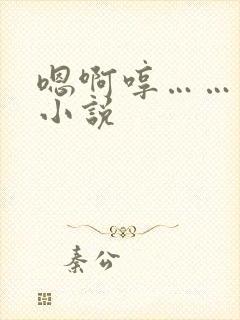 嗯啊哼……
小说
秦公